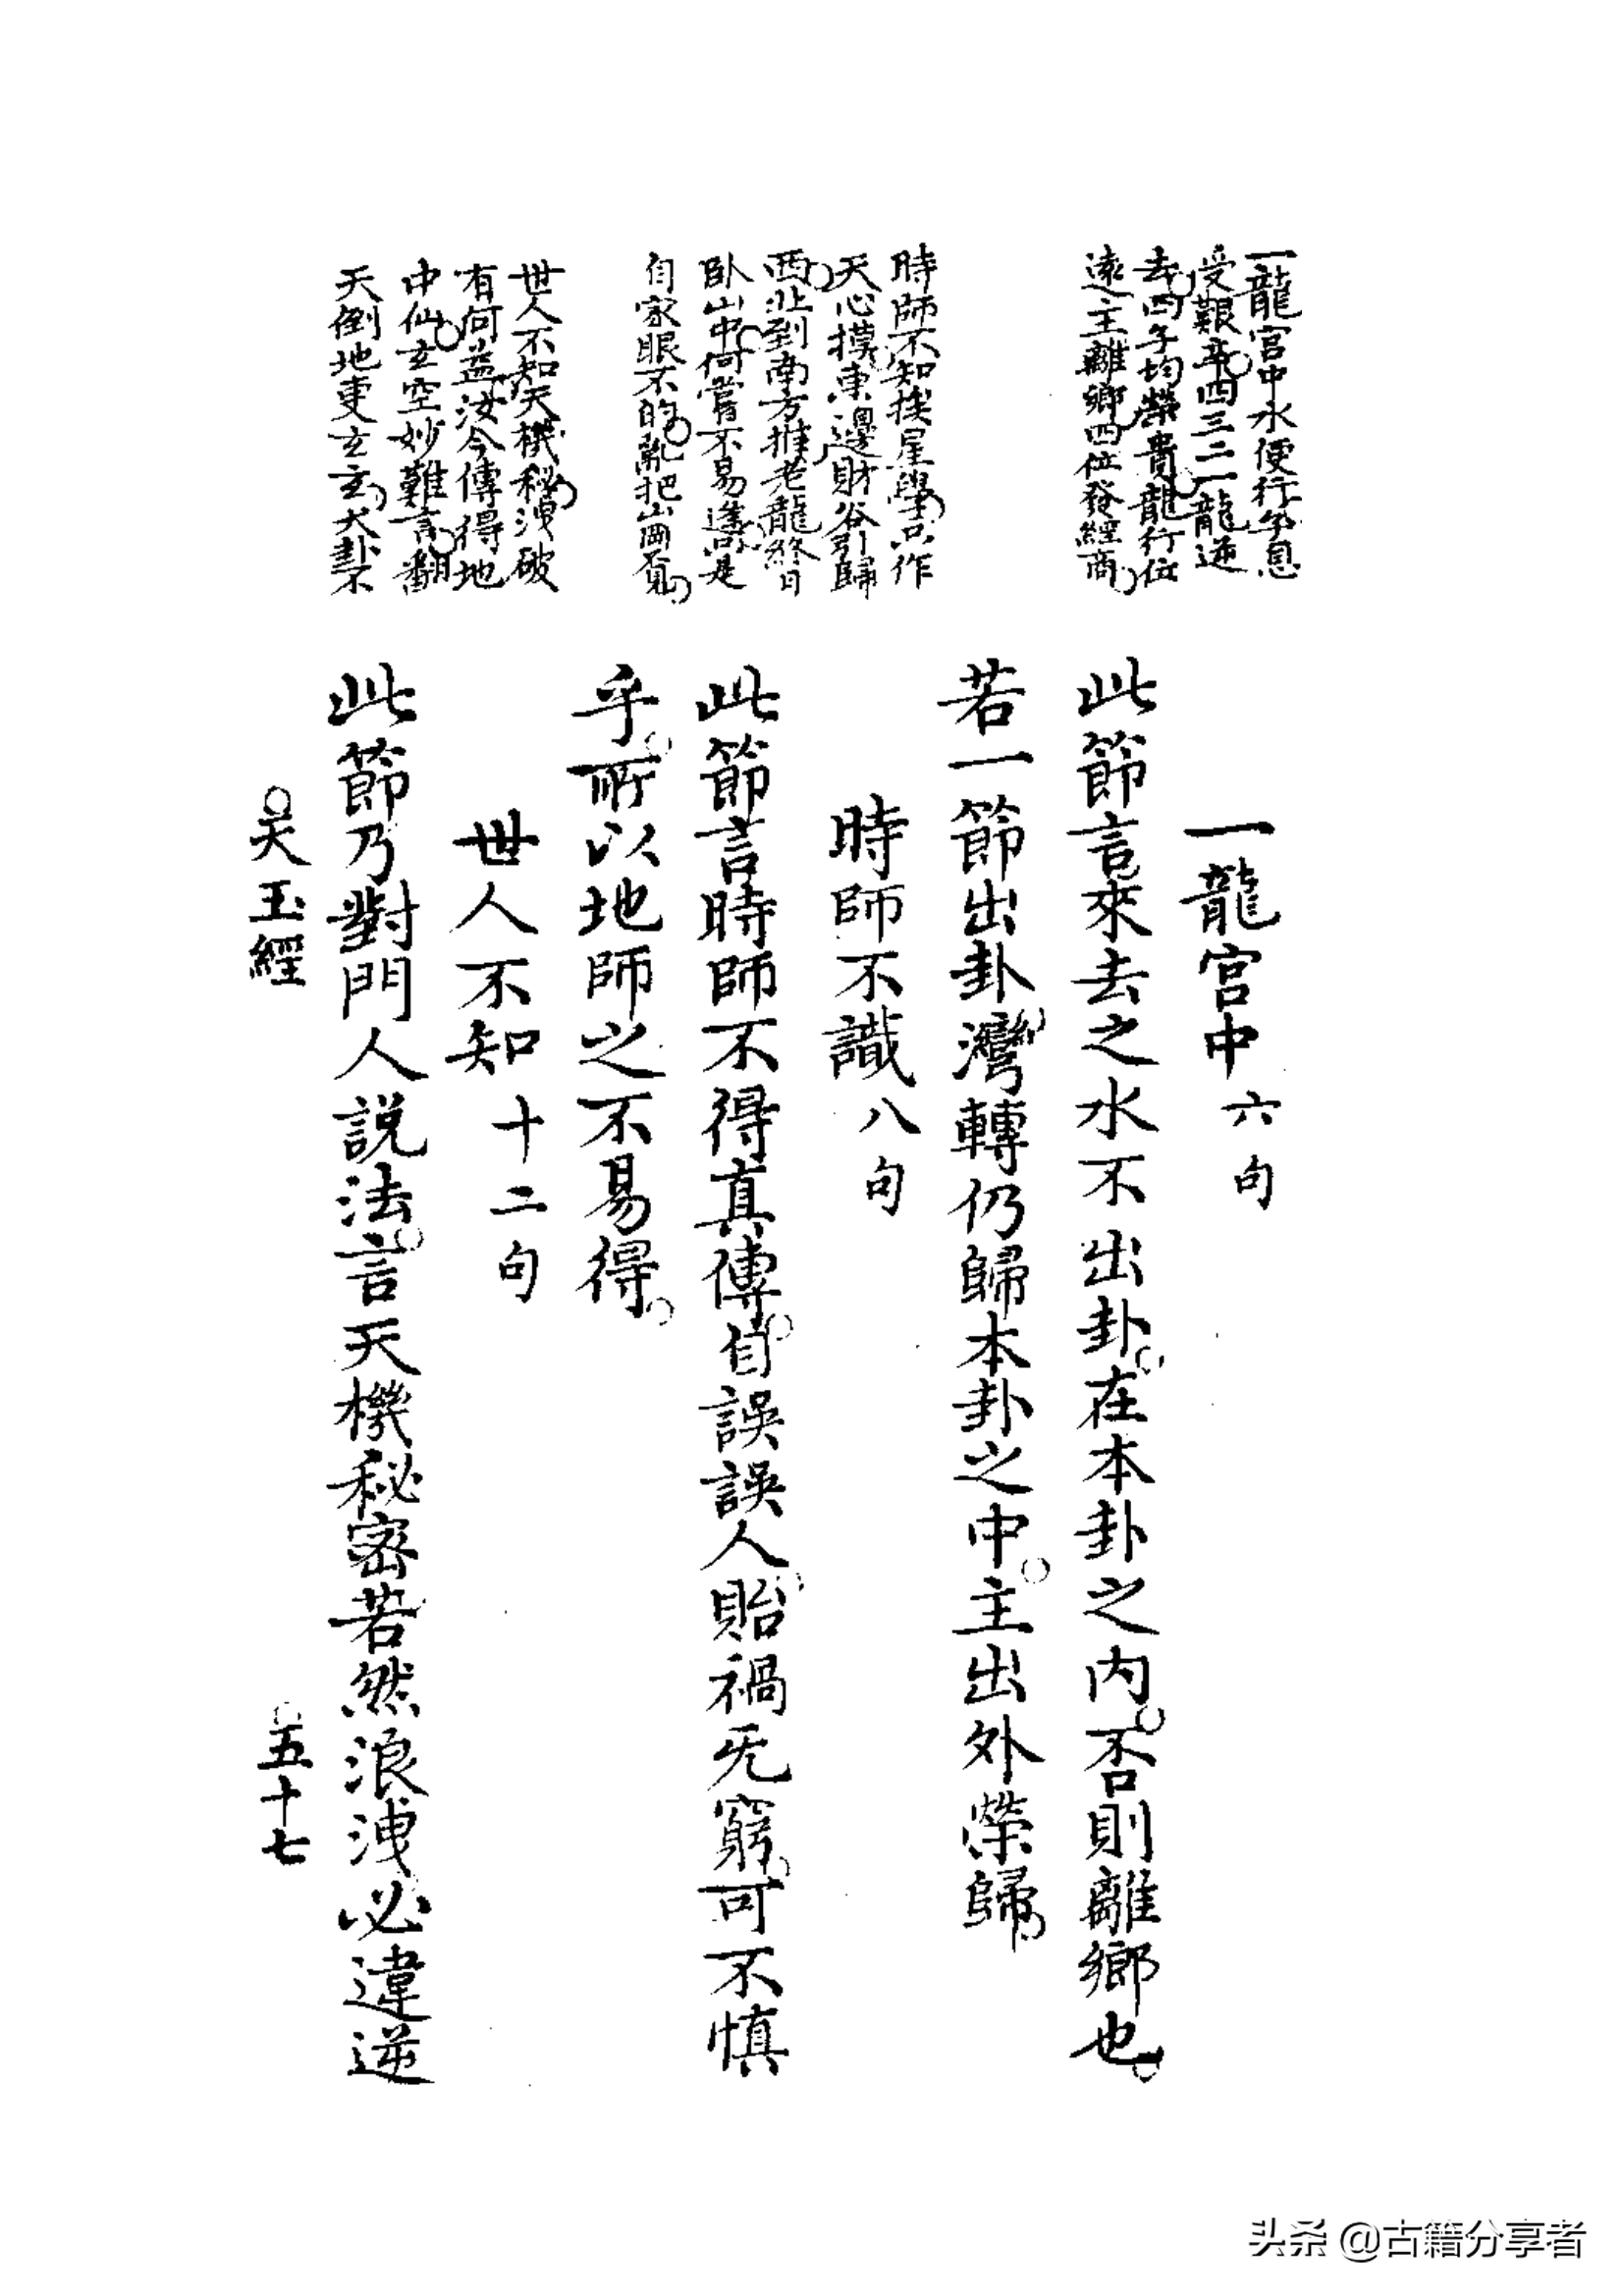 一龍宮中水便行子息
受艱辛四三二一龍逆
去四子均榮貴龍行位
遠主離鄉四位發經商
時師不知挨星學只作
天心摸東邊財谷引歸
西北到南方推老龍終日
臥山中何嘗不易逢只是
自家眼不的亂把山岡覓
世人不知天機秘洩破
有何益汝今傳得地
中仙玄空妙難言翻
天倒地更玄玄大卦不
一龍宮中 六句
此節言來去之水不出卦在本卦之內否則離鄉也
若一節出卦灣轉仍歸本卦之中主出外榮歸
時師不識 八句
此節言時師不得真傳自誤誤人貽禍无窮可不慎
乎所以地師之不易得
世人不知 十二句
此節乃對門人説法言天機秘密若然浪洩必違逆
天玉經
五十七
头条 @古籍分享者